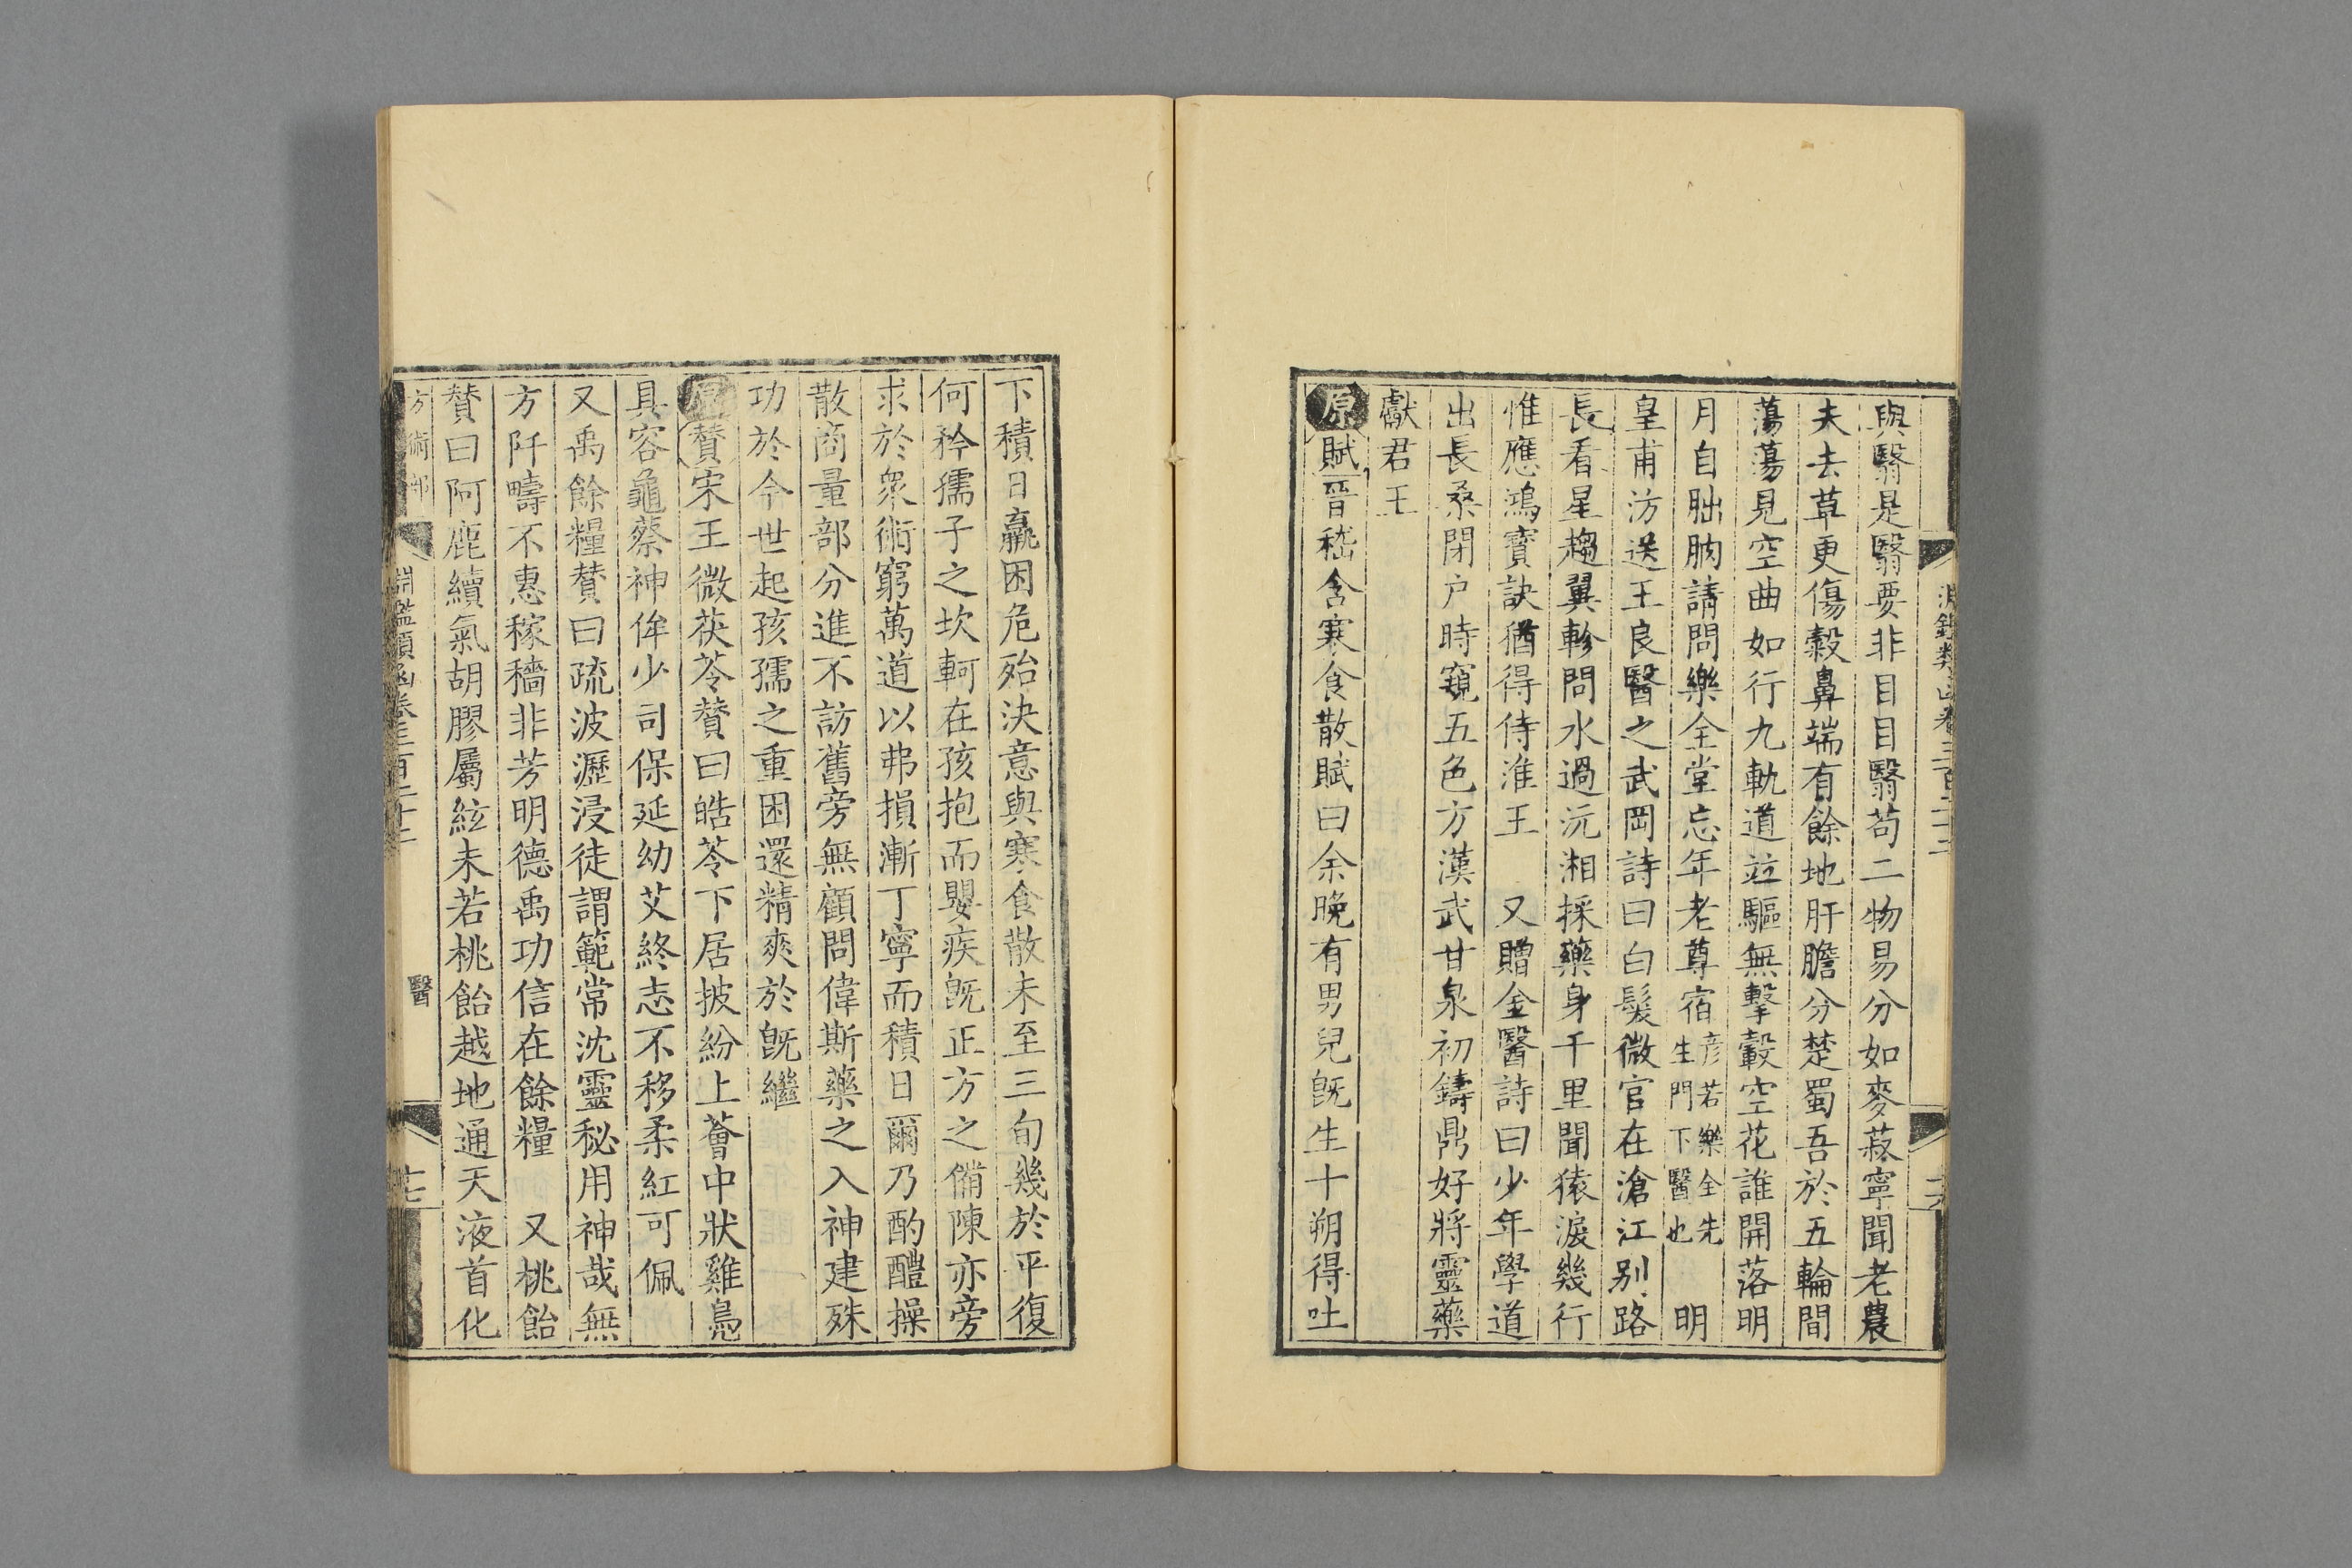 與翳是翳要非目目翳苟二物易分如麥菽寧聞老農
夫去草更傷穀鼻端有餘地肝膽分楚蜀吾於五輪間
蕩蕩見空曲如行九軌道竝驅無擊轂空花誰開落明
月自朏朒請問樂全堂忘年老尊宿彥若樂全先生門下醫也 明
皇甫汸送王良醫之武岡詩曰白髮微官在滄江别路
長看星趨翼軫問水過沅湘採藥身千里聞猿淚幾行
惟應鴻寶訣猶得侍淮王 又贈金醫詩曰少年學道
出長桑閉户時窺五色方漢武甘泉初鑄鼎好將靈藥
獻君王
原賦晉嵇含寒食散賦曰余晚有男兒旣生十朔得吐
下積日羸困危殆決意與寒食散未至三旬幾於平復
何矜孺子之坎軻在孩抱而嬰疾旣正方之備陳亦旁
求於衆術窮萬道以弗損漸丁寧而積日爾乃酌醴操
散商量部分進不訪舊旁無顧問偉斯藥之入神建殊
功於今世起孩孺之重困還精爽於旣繼
原贊宋王微茯苓贊曰皓苓下居披紛上薈中狀雞鳧
具容龜蔡神侔少司保延幼艾終志不移柔紅可佩
又禹餘糧贊曰疏波瀝浸徒謂範常沈靈秘用神哉無
方阡疇不惠稼穡非芳明德禹功信在餘糧 又桃飴
贊曰阿鹿續氣胡膠屬絃未若桃飴越地通天液首化
方術部 淵鑑類函卷三百二十二 醫 十七